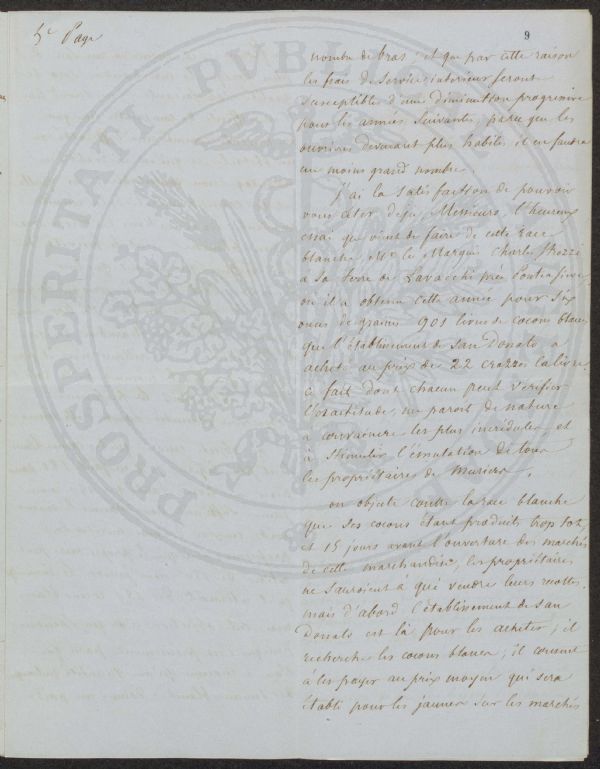 5e Page
9
nombre de bras ; et que par cette raison
les frais de service intérieur seront
susceptibles d'une diminution progressive
pour les années suivantes, parce que les
ouvrières devenant plus habiles il en faudra
un moins grand nombre.
J'ai la satisfaction de pouvoir
vous citer déjà, Messieurs, l'heureux
essai que vient de faire de cette race
blanche, Mr le Marquis Charles Strozzi
à sa terre de Lavacchi près Pontassieve
où il a obtenu cette année pour six
onces de graines 901 livres de cocons blancs
que l'établissement de San Donato a
acheté au prix de 22 crazzes la livre.
ce fait dont chacun peut vérifier
l'exactitude, me paroit de nature
à convaincre les plus incrédules et
à stimuler l'émulation de tous
les propriétaires de Muriers.
on objecte contre la race blanche
que ses cocons étant produits trop tot,
et 15 jours avant l'ouverture des marchés
de cette marchandise, les propriétaires
ne sauroient à qui vendre leurs recoltes.
mais d'abord l'établissement de San
Donato est là pour les acheter ; il
recherche les cocons blancs ; il consent
a les payer au prix moyen qui sera
établi pour les jaunes sur les marchés
PROSPERITATI PUBLICAE